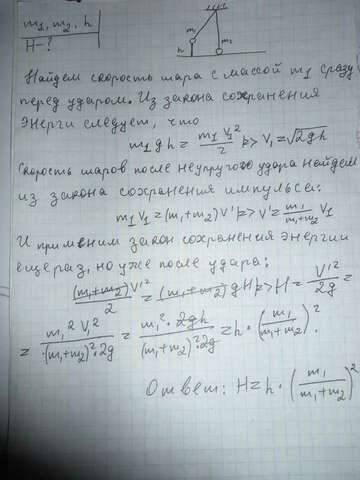 m₁, m₂, h
H-?
m₁
h
m₂
Найдем скорость шара с массой m₁ сразу
перед ударом. Из закона сохранения
энерги следует, что
m₁gh = m₁V₁²/2 => V₁ = √2gh
Скорость шаров после неупругого удара найдем
из закона сохранения импульса:
m₁V₁ = (m₁+m₂)V' => V' = m₁/(m₁+m₂) V₁
И применим закон сохранения энергии
еще раз, но уже после удара:
(m₁+m₂)V'²/2 = (m₁+m₂)gH => H = V'²/2g =
= m₁²V₁²/(m₁+m₂)²·2g = m₁²·2gh/(m₁+m₂)²·2g = h·(m₁/(m₁+m₂))².
Ответ: H = h·(m₁/(m₁+m₂))²